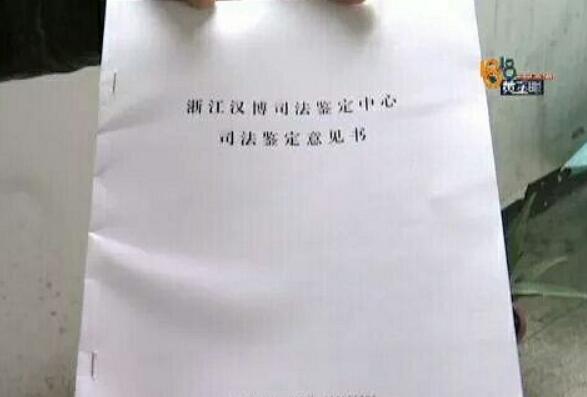 浙江汉博司法鉴定中心
司法鉴定意见书